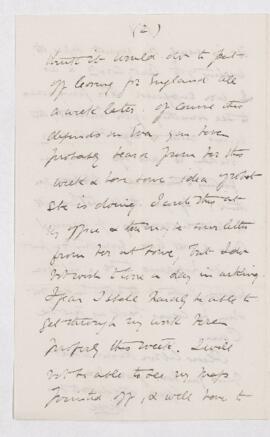 (2)
think it would do to put
off leaving for England till
a week later. Of course this
depends on Eva, you have
probably heard from her this
week & have some idea of what
she is doing. I write this at
my office & there may be some letter
from her at home, but I do
not wish to lose a day in asking.
I fear I shall hardly be able to
get through my work here
properly this week. I will
not be able to see my maps
printed off, & will have to